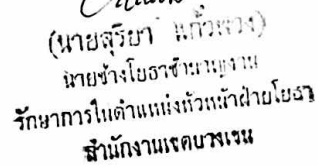 (นายสุริยา แก้วแวง)
นายช่างโยธาชำนาญงาน
รักษาการในตำแหน่งหัวหน้าฝ่ายโยธา
สำนักงานเขตบางเขน